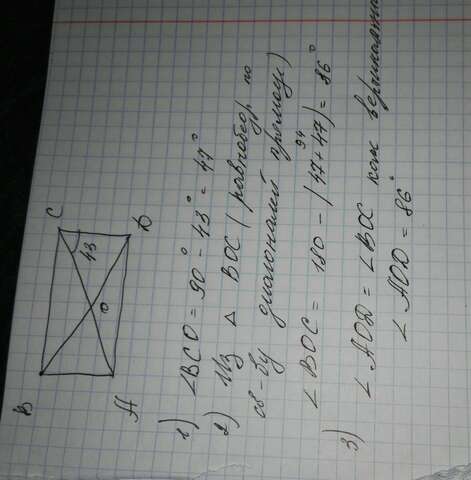 B
C
43
O
A
D
1) ∠BCO = 90° - 43° = 47°
2) Из △ BOC (равнобедр по
св-ву диагоналей прямоуг)
94
∠ BOC = 180 - (47 + 47) = 86°
3) ∠ AOD = ∠ BOC как вертикальн
∠ AOD = 86°